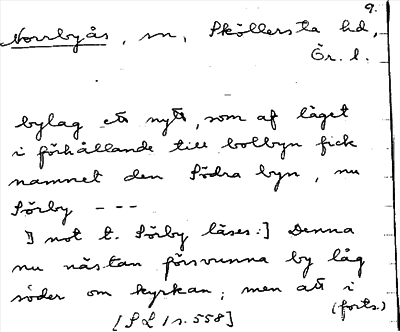 9.
Norrbyås, sn, Sköllersta hd,
Ör. l.
bylag ett nytt, som af läget
i förhållande till bolbyn fick
namnet den Södra byn, nu
Sörby - - -
I not t. Sörby läses:] Denna
nu nästan försvunna by låg
söder om kyrkan; men att i
(forts.)
[SL 1 s. 558]